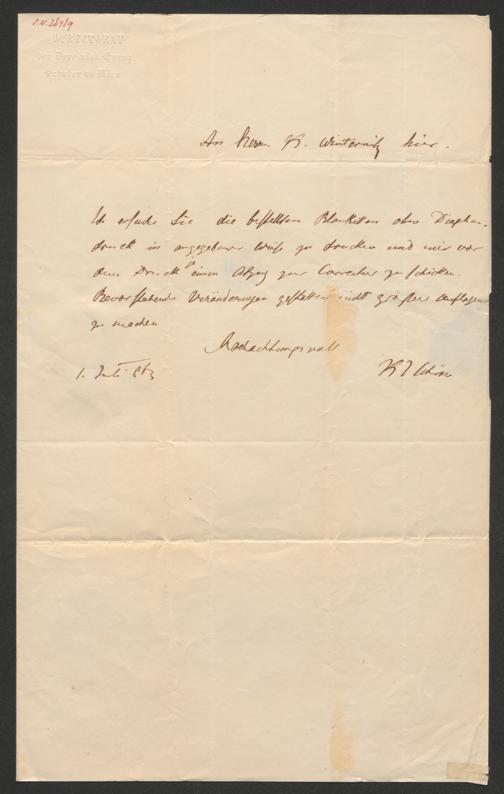 I.N. 28419
DIRECTORAT
der Vereinigt. Evang.
Schulen in Wien
An Herrn K. Winternitz hier.
Ich ersuche Sie die bestellten Blanketten ohne
druck in angegebener Weise zu drucken und mir vor
dem Druck einen Abzug zur Correctur zu schicken.
Bevorstehende Veränderungen gestatten nicht größere Auflagen
zu machen
Hochachtungsvoll
1. Juli 863